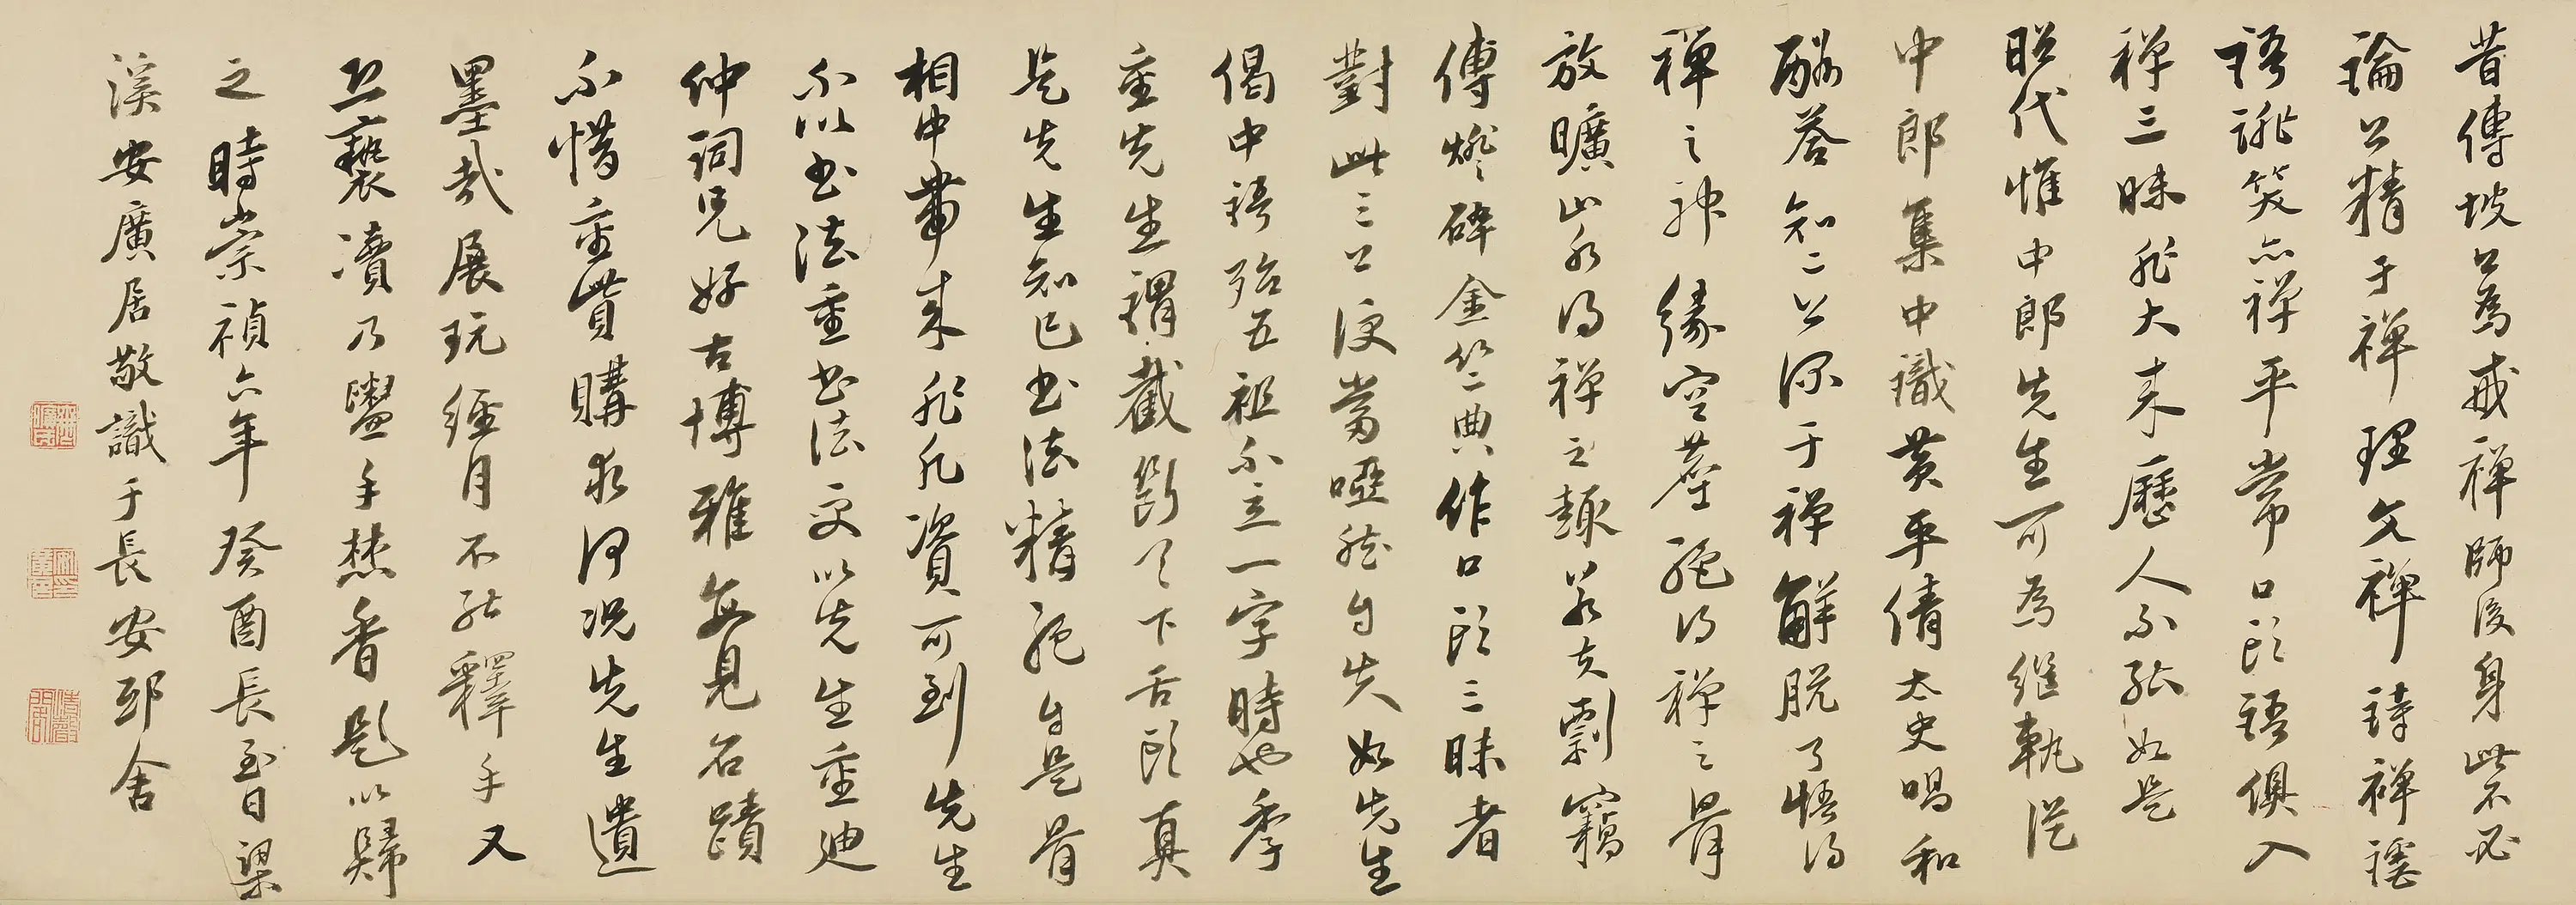 昔傳坡公爲戒禪師後身此不必
論公精于禪理文禪詩禪謔
語詼笑亦禪平常口頭語俱入
禪三昧非大來歷人不能如是
昭代惟中郎先生可為繼軌從
中郎集中識黃平倩太史唱和
酬答知二公深于禪解脫了悟得
禪之神緣空塵龕得禪之骨
放曠山水得禪之趣若夫剽竊
傳燈碎金竺典作口頭三昧者
對此三公便當啞然自失如先生
偈中語殆五祖不立一字時也季
重先生謂截斷天下舌頭真
是先生知己書法精絕自是骨
相中帶來非凡資可到先生
不以書法重書法更以先生重迪
仲詞兄好古博雅每見名蹟
不惜重貲購求何況先生遺
墨哉展玩經月不能釋手又
恐褻瀆乃盥手焚香題以歸
之時崇禎六年癸酉長至日梁
溪安廣居敬識于長安邸舍